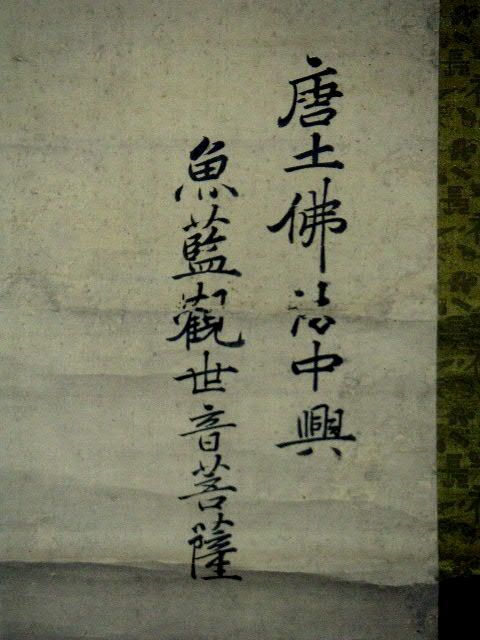 唐土佛法中興
魚藍觀世音菩薩